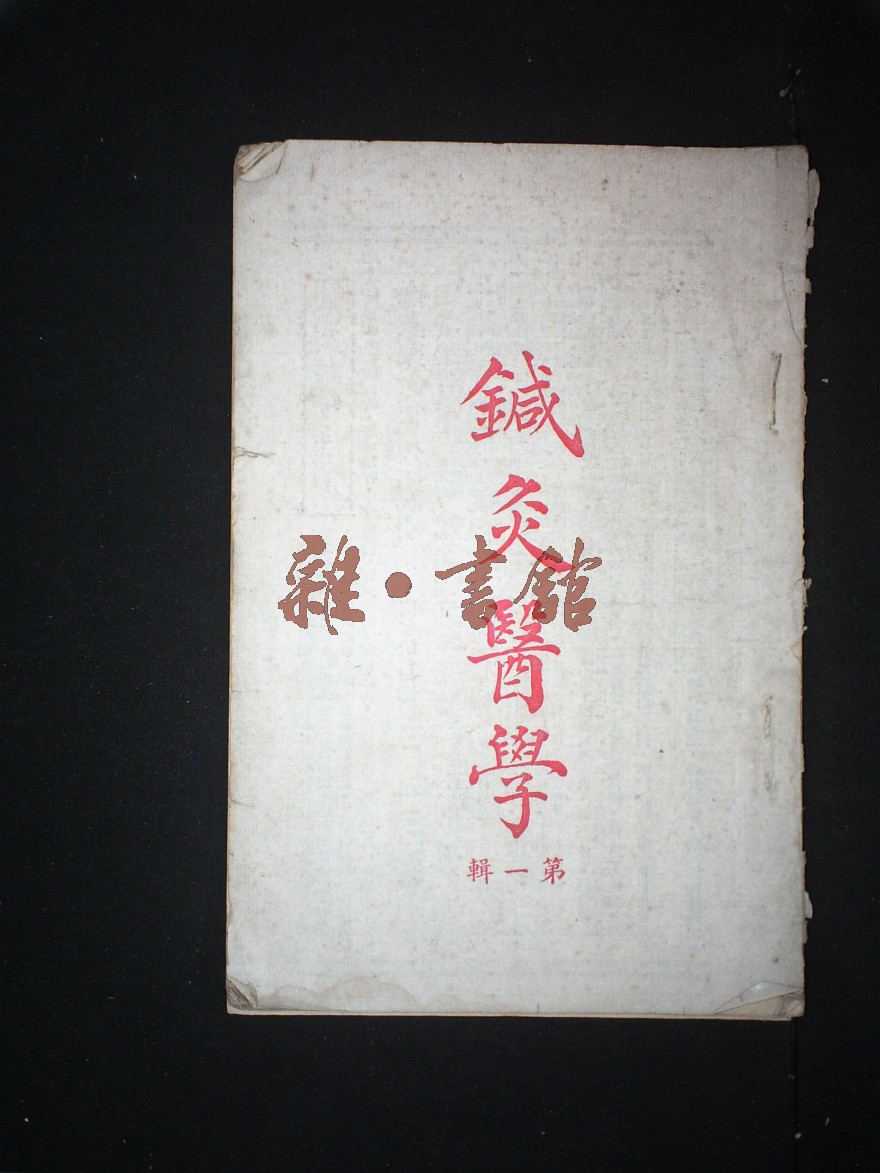 鍼灸醫學
第一輯
雜·書館